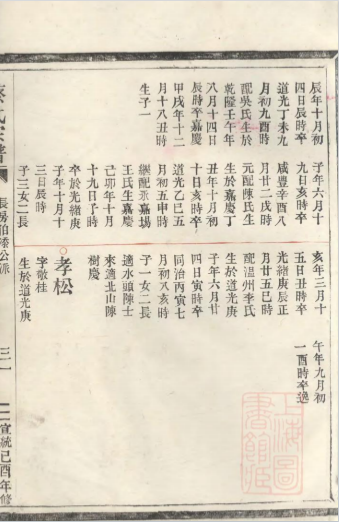 辰年十月初
四日辰時卒
道光丁未九
月初九酉時
配吳氏生於
乾隆壬午年
八月十四日
辰時卒嘉慶
甲戌年十二
月十八丑時
生子一
子年六月十
九日亥時卒
咸豐辛酉八
月廿二戌時
元配陳氏生
於嘉慶丁
丑年十月初
十日亥時卒
道光乙巳五
月初五申時
繼配永嘉場
王氏生嘉慶
己卯年十月
十九日子時
卒於光緒庚
子年十月十
三日辰時
子三女二長
亥年三月十
五日丑時卒
光緒庚辰正
月廿五巳時
配溫州李氏
生於道光庚
子年六月廿
四日寅時卒
同治丙寅七
月初八亥時
子一女二長
適水頭陳士
來適北山陳
樹慶
孝松
字敬桂
生於道光庚
午年九月初
一酉時卒逸
氏宗譜
長房伯 公派
三一
宣統己酉年修
上海圖書館藏